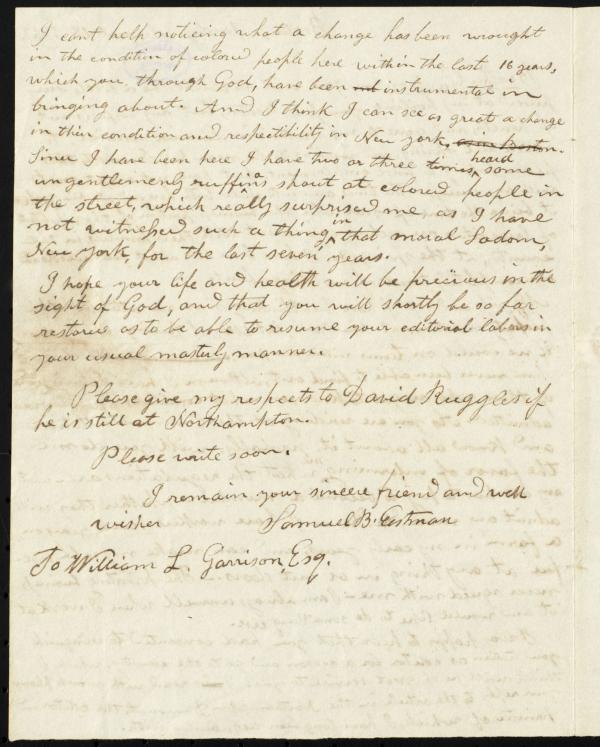 I can't help noticing what a change has been wrought
in the condition of colored people here within the last 16 years,
which you, through God, have been instrumental in
bringing about. And I think I can see as great a change
in their condition and respectibility in New York, as in Boston.
Since I have been here I have two or three times heard some
ungentlemenly ruffians shout at colored people in
the street, which really surprised me, as I have
not witnessed such a thing in that moral Sodom,
New York, for the last seven years.
I hope your life and health will be precious in the
sight of God, and that you will shortly be so far
restored as to be able to resume your editorial labors in
your usual masterly manner.
Please give my respects to David Ruggles if
he is still at Northampton.
Please write soon.
I remain your sincere friend and well
wisher Samuel B. Eastman
To William L. Garrison Esq.